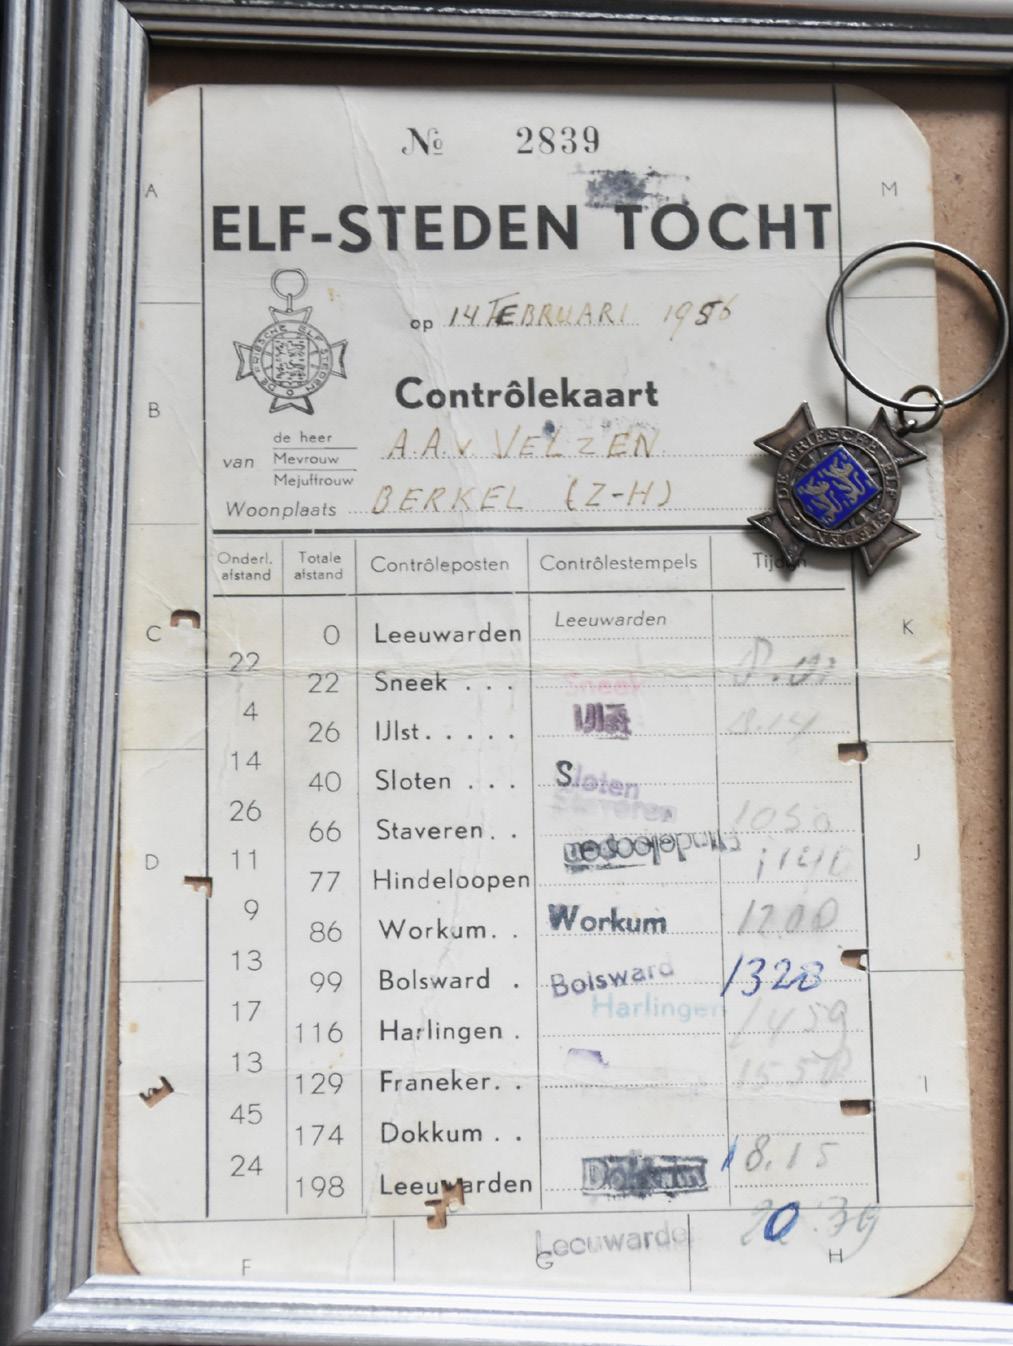 № 2839
ELF-STEDEN TOCHT
op 14 FEBRUARI 1956
Contrôlekaart
de heer
van Mevrouw A.A.v. VELZEN
Mejuffrouw
Woonplaats BERKEL (Z-H)
DE FRIESCHE ELF STEDEN
Onderl. afstand Totale afstand Contrôleposten Contrôlestempels Tijden
Leeuwarden
0 Leeuwarden
22
22 Sneek . . . Sneek
4
26 IJlst . . . . . IJlst 8.14
14
40 Sloten . . . Sloten
26
66 Staveren . . Staveren 1050
11
77 Hindeloopen Hindeloopen 1140
9
86 Workum . . Workum 12.00
13
99 Bolsward . Bolsward 1328
17
116 Harlingen . Harlingen 1459
13
129 Franeker . . 1550
45
174 Dokkum . . Dokkum 18.15
24
198 Leeuwarden Leeuwarde 20.39
A
B
C
D
E
F
G
H
I
J
K
M